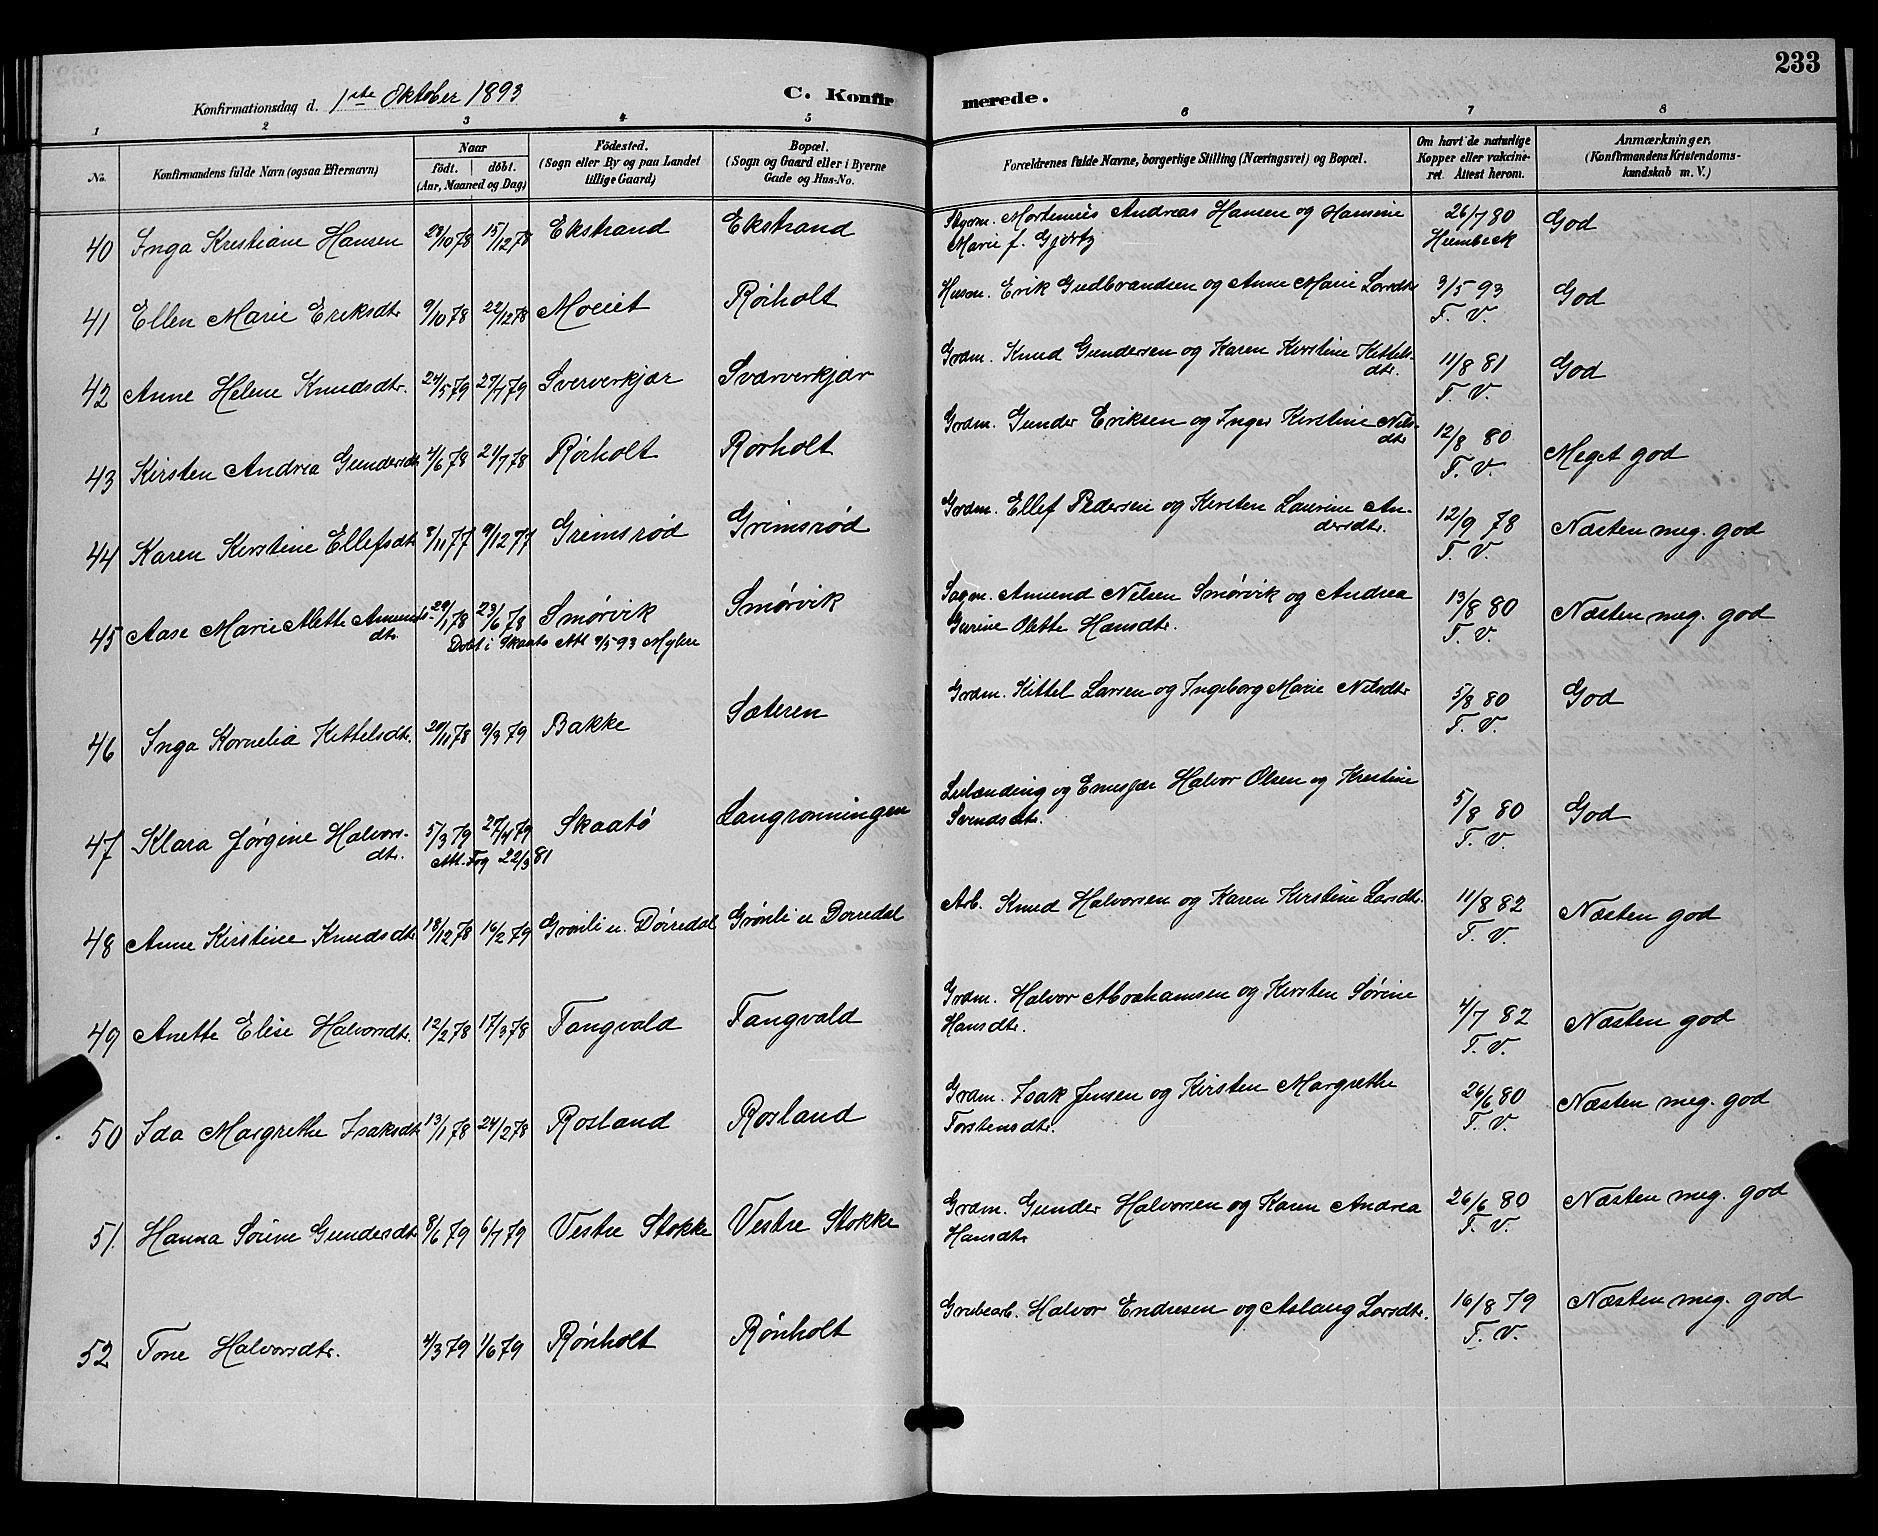 233
Konfirmationsdag d. 1ste Oktober 1893 C. Konfirmerede.
1 2 3 4 5 6 7 8
No. Konfirmandens fulde Navn (ogsaa Efternavn) Naar født. døbt. (Aar, Maaned og Dag) Fødested. (Sogn eller By og paa Landet tillige Gaard) Bopæl. (Sogn og Gaard eller i Byerne Gade og Hus-No. Forældrenes fulde Navne, borgerlige Stilling (Næringsvei) og Bopæl. Om havt de naturlige Kopper eller vakcineret. Attest herom. Anmærkninger. (Konfirmandens Kristendomskundskab m. V.)
40 Inga Kristiane Hansen 23/10 78 15/12 78 Ekstrand Ekstrand Styrm. Mortinius Andreas Hansen og Hansine
Marie f. Gjørtz 26/7 80 Heimbeck God
41 Ellen Marie Eriksdtr 9/10 78 22/12 78 Moeiet Rørholt Husm. Erik Gudbrandsen og Anne Marie Larsdtr 3/5 93 F. V. God
42 Anne Helene Knudsdtr. 24/5 79 27/7 79 Sververkjær Sværverkjær Grdm. Knud Gundersen og Karen Kirstine Kittels-
dtr. 11/8 81 F. V. God
43 Kirsten Andrea Gundersdtr 4/6 78 21/7 78 Rørholt Rørholt Grdm. Gunder Eriksen og Inger Kirstine Nils-
dtr 12/8 80 F. V. Meget god
44 Karen Kirstine Ellefsdtr 8/11 77 9/12 77 Grimsrød Grimsrød Grdm. Ellef Pedersen og Kirsten Laurine An-
dersdtr. 12/9 78 F. V. Næsten meg. god
45 Aase Marie Alette Amunds-
dtr. 29/1 78 23/6 78 Smørvik Smørvik Sagm. Amund Nilsen Smørvik og Andrea
Gurine Olette Hansdtr. 13/8 80 F. V. Næsten meg. god
Døbt i Skaatø Att. 9/5 93 Myhre
46 Inga Kornelia Kittelsdtr. 20/11 78 9/3 79 Bakke Sæteren Grdm. Kittel Larsen og Ingeborg Marie Nilsdtr 5/8 80 F. V. God
47 Klara Jørgine Halvors-
dtr. 5/3 79 27/4 79 Skaatø Langrønningen Leilænding og Halvor Olsen og Kirstine
Svendsdtr. 5/8 80 F. V. God
Att. Fog 22/3 81
48 Anne Kirstine Knudsdtr. 18/12 78 16/2 79 Grønli u. Dørredal Grønli u Dørredal Arb. Knud Halvorsen og Karen Kirstine Larsdtr. 11/8 82 F. V. Næsten god
49 Anette Elise Halvorsdtr. 12/2 78 17/3 78 Fangvald Fangvald Grdm. Halvor Abrahamsen og Kirsten Sørine
Hansdtr. 4/7 82 F. V. Næsten god
50 Ida Margrethe Isaksdtr 13/1 78 24/2 78 Rosland Rosland Grdm. Isak Jensen og Kirsten Margrethe
Torstensdtr. 26/6 80 F. V. Næsten meg. god
51. Hanna Sørine Gundersdtr 8/6 79 6/7 79 Vestre Stokke Vestre Stokke Grdm. Gunder Halvorsen og Karen Andrea
Hansdtr 26/6 80 F. V. Næsten meg. god
52 Tone Halvorsdtr. 4/3 79 1/6 79 Rønholt Rønholt Grubearb. Halvor Endresen og Aslaug Larsdtr. 16/8 79 F. V. Næsten meg. god